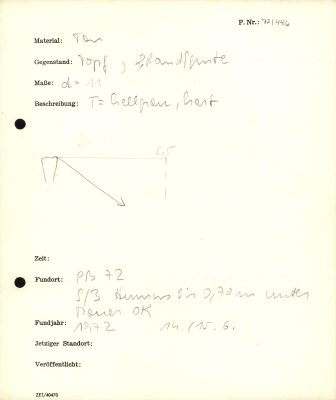 P. Nr.: 72/446
Material: Ton
Gegenstand: Topf, 2 Randstücke
Maße: d = 11
Beschreibung: T = hellgrau, hart
5,5
Zeit:
Fundort: PB 72
S/3 Humus bis 0,70 m unter
Mauer OK
Fundjahr: 1972 14./15. 6.
Jetziger Standort:
Veröffentlicht:
ZET/40470